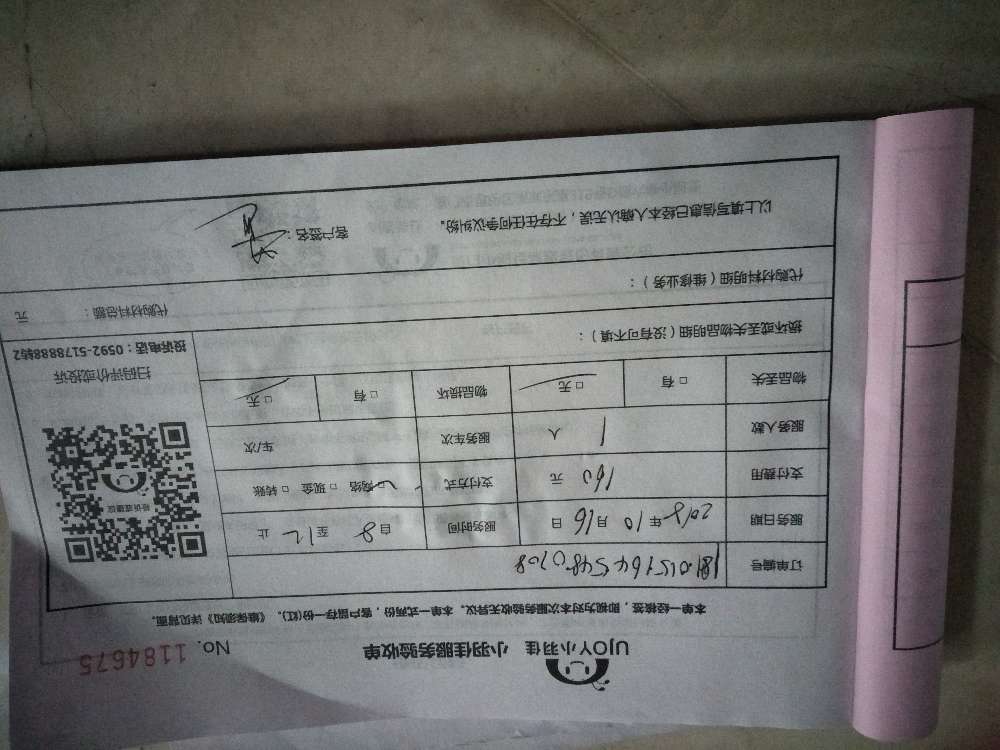 UJOY小羽佳 小羽佳服务验收单 No. 1184675
本单一经接签,即视为对本次服务验收无异议。本单一式两份,客户留存一份(红)。《维保须知》详见背面。
订单编号 1810151645480708
服务日期 2018年10月16日 服务时间 自8至12止
支付费用 160元 支付方式 □网络 □现金 □转账
服务人数 1人 服务车次 车/次
物品丢失 □有 □无 物品损坏 □有 □无
损坏或丢失物品明细(没有可不填):
代购材料明细(维修业务): 代购材料总额: 元
以上填写信息已经本人确认无误,不存在任何争议纠纷。 客户签名:
投诉建议
扫码评价或投诉
投诉电话:0592-5178888转2